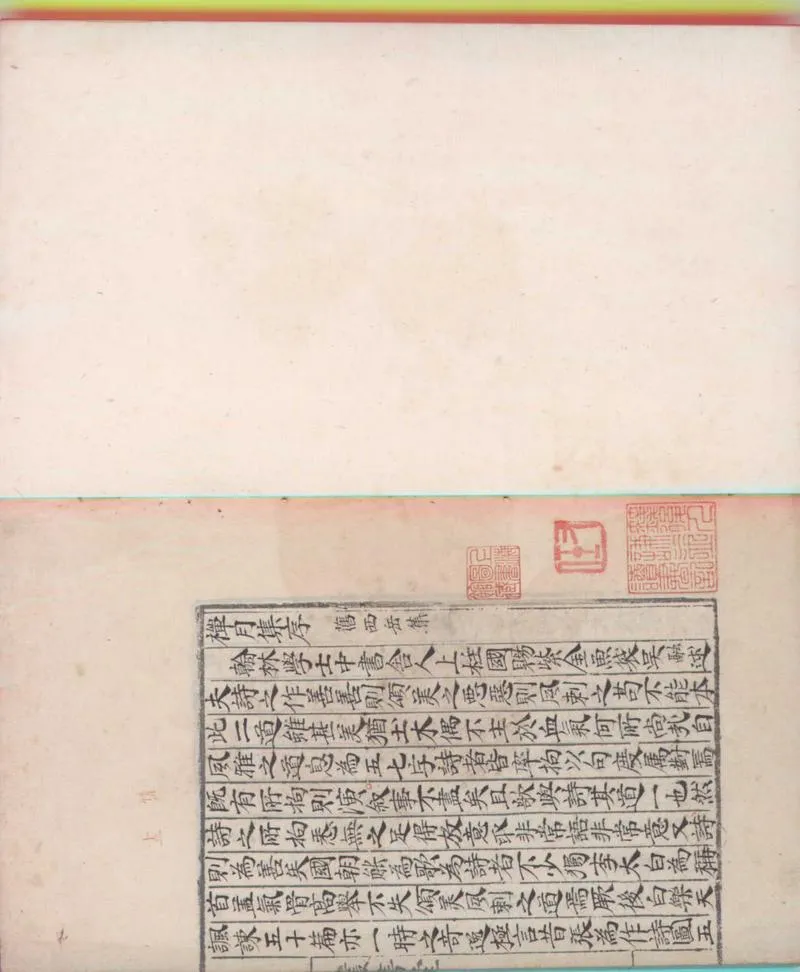 禪月集序 舊西岳集
翰林學士中書舍人上柱國賜紫金魚袋吳融述
夫詩之作善善則頌美之惡惡則風刺之苟不能本
此二道雖甚美猶土木偶不主於血氣何所尚哉自
風雅之道息為五七字詩者皆率拘以句度屬對焉
既有所拘則演叙事不盡矣且歌與詩其道一也然
詩之所拘悉無之足得放意取非常語非常意又詩
則為善矣國朝能為歌為詩者不少獨李太白為稱
首蓋氣骨高舉不失頌美風刺之道焉厥後白樂天
諷諫五十篇亦一時之奇逸極言昔張為作詩圖五